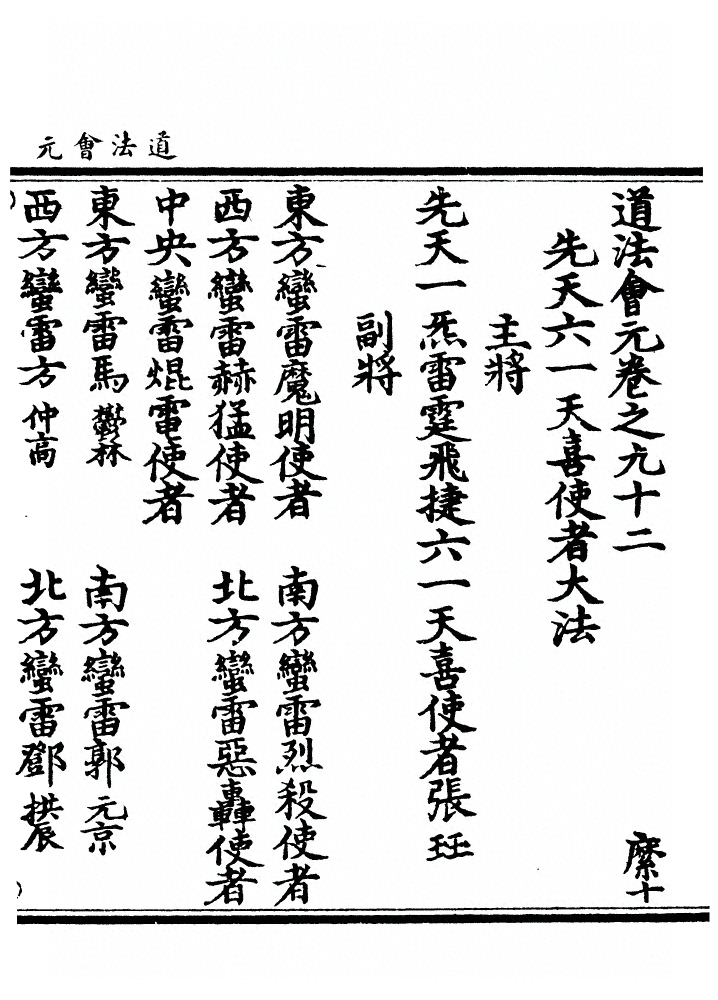 道法會元
道法會元卷之九十二 縻十
先天六一天喜使者大法
主將
先天一炁雷霆飛捷六一天喜使者張珏
副將
東方蠻雷魔明使者 南方蠻雷烈殺使者
西方蠻雷赫猛使者 北方蠻雷惡轟使者
中央蠻雷焜電使者
東方蠻雷馬鬱林 南方蠻雷郭元京
西方蠻雷方仲高 北方蠻雷鄧拱辰